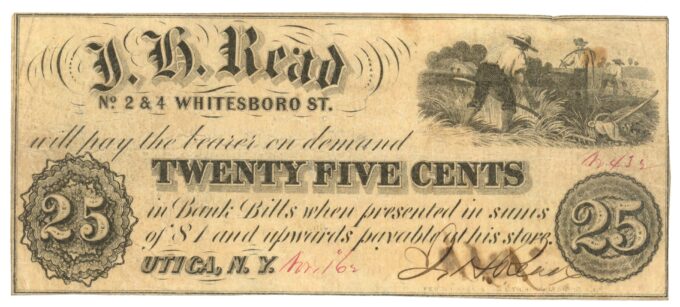 J. H. Read
No 2 & 4 WHITESBORO ST.
will pay the bearer on demand
TWENTY FIVE CENTS
25
in Bank Bills when presented in sums
of $1 and upwards payable at his store.
25
UTICA, N. Y.